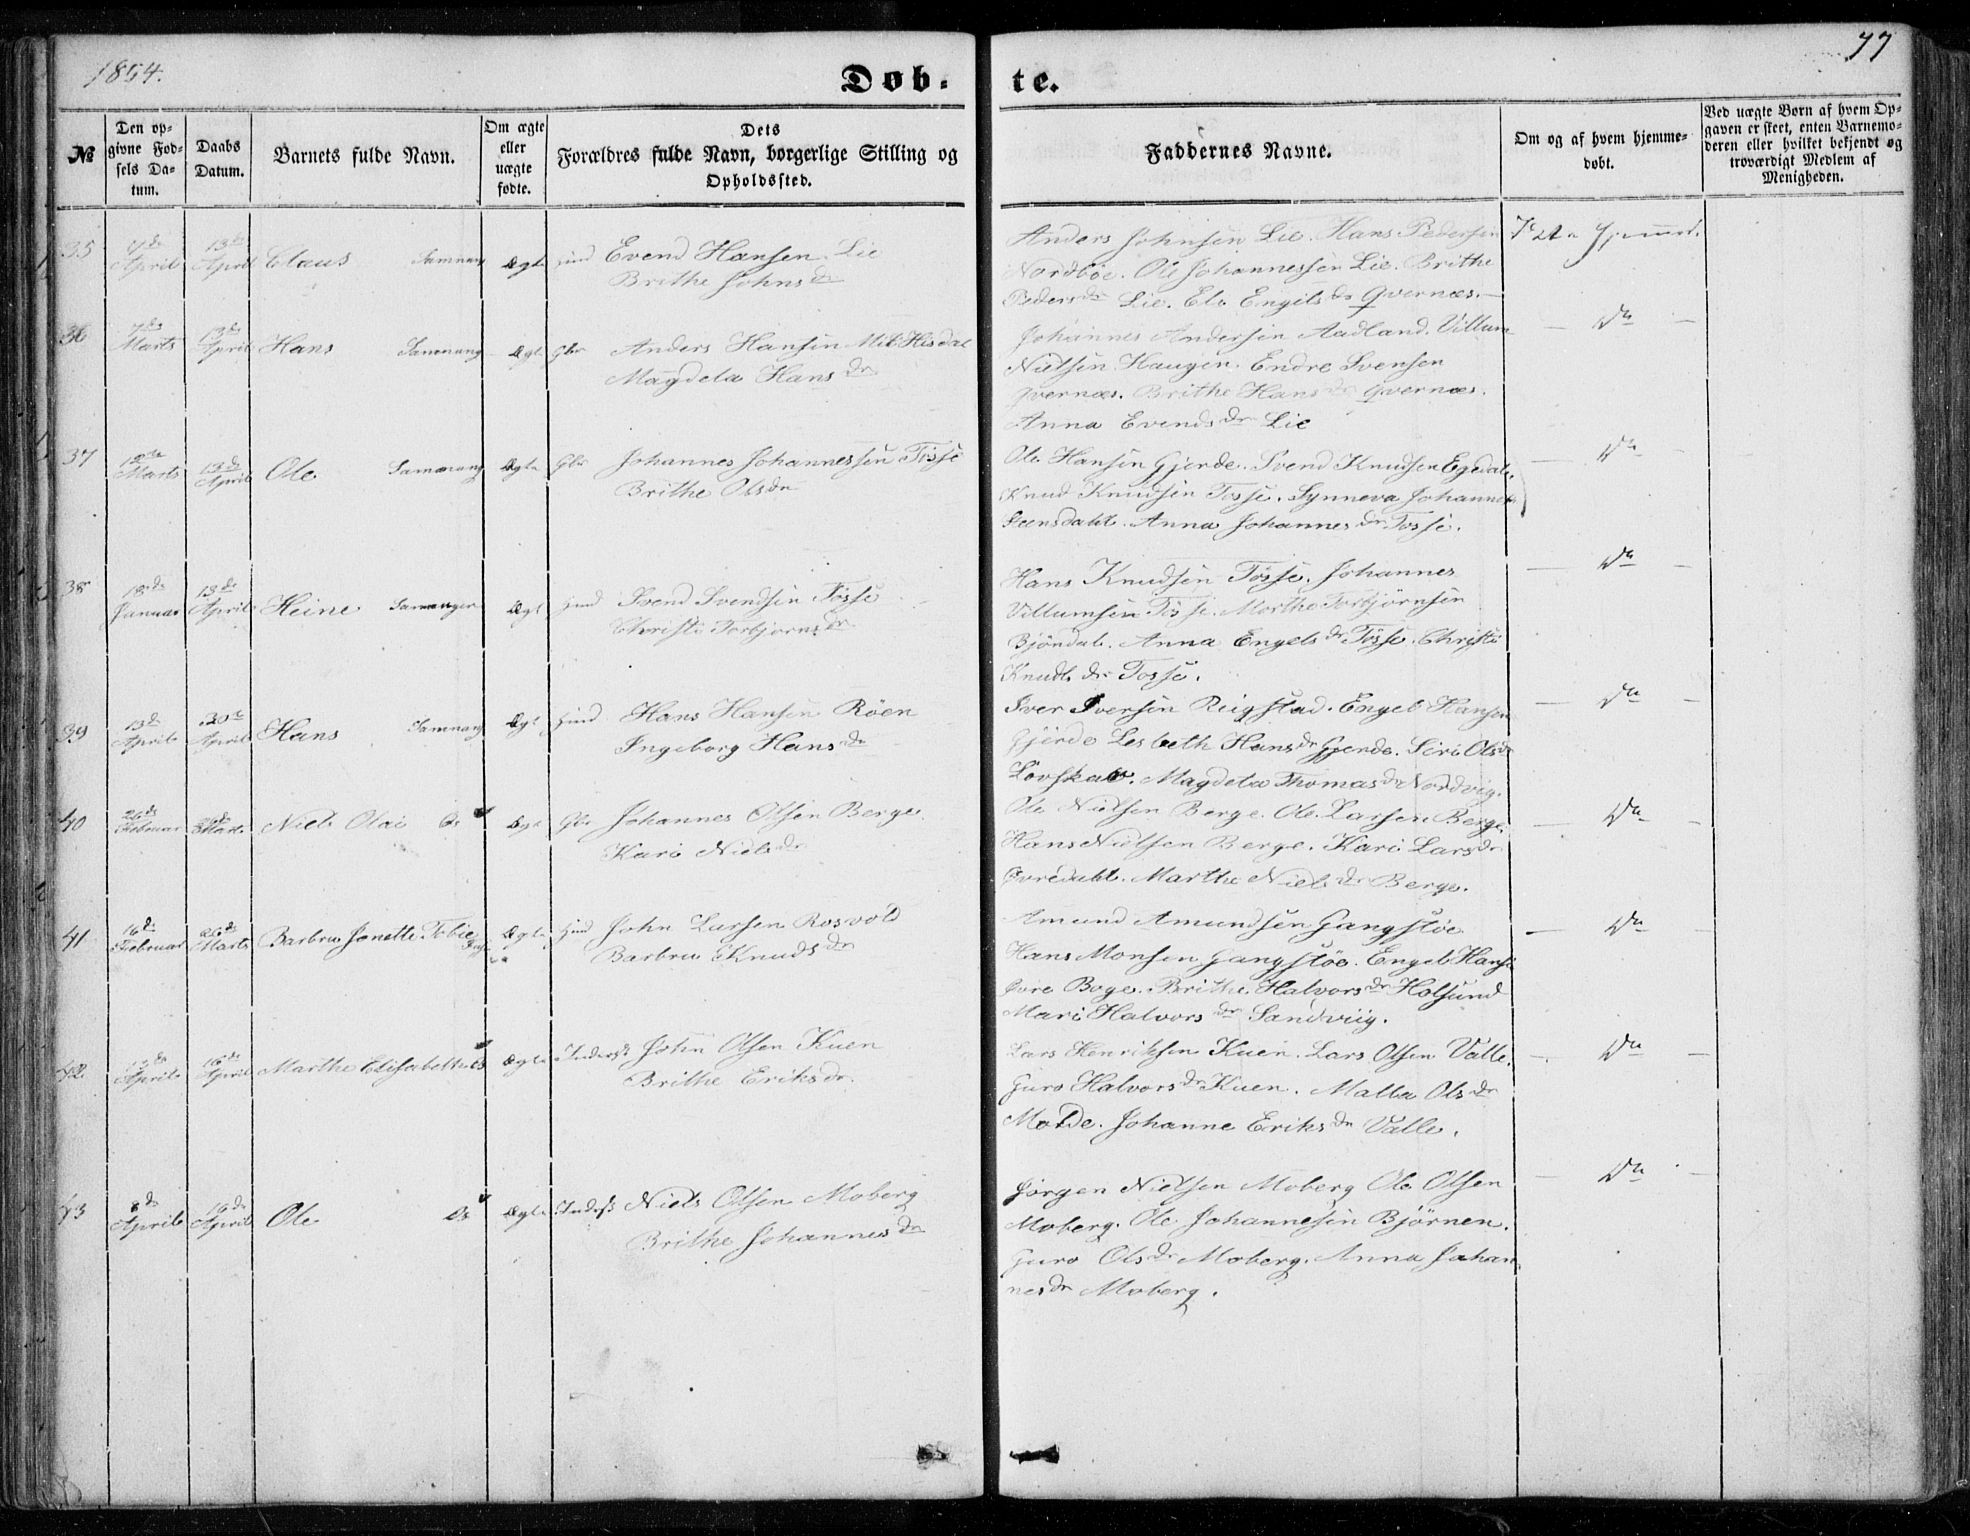 1854.
Døb-
te.
77
№
Den op-
givne Fød-
sels Da-
tum.
Daabs
Datum.
Barnets fulde Navn.
Om ægte
eller
uægte
fødte.
Dets
Forældres fulde Navn, borgerlige Stilling og
Opholdssted.
Faddernes Navne.
Om og af hvem hjemme-
døbt.
Ved uægte Børn af hvem Op-
gaven er skeet, enten Barnemo-
deren eller hvilket bekjendt og
troværdigt Medlem af
Menigheden.
35 7de April 13de April Claus Samnang Ægte Huusd Evend Hansen Lie
Brithe Johnsdr
Anders Johnsen Lie. Hans Pedersen
Nordbøe. Ole Johannessen Lie. Brithe
Pedersdr Lie. Els Engilsdr Qvernæs.
36 7de Marts 13de April Hans Samnang Ægte Gbr Anders Hansen Mit Hisdal
Magdela Hansdr
Johannes Andersen Aadland. Villum
Nielsen Haugen. Endre Svensen
Qvernæs. Brithe Hansdr Qvernæs.
Anna Evendsdr Lie
Do
37 12te Marts 13de April Ole Samnang Ægte Gbr Johannes Johannessen Tøsse
Brithe Olsdr
Ole Hansen Gjerde. Svend Knudsen Egedal.
Knud Knudsen Tøsse. Synneva Johannes
Steensdahl. Anna Johannesdr Tøsse.
Do
38 18de Januar 13de April Heine Samnanger Ægt Svend Svendsen Tøsse
Christi Torbjørnsdr
Hans Knudsen Tøsse. Johannes
Villumsen Tøsse. Marthe Torbjørnsen
Bjøndal. Anna Engelsdr Tøsse. Christi
Knudsdr Tosse.
Do
39 13de April 30te April Hans Samnang Ægt Hans Hansen Røen
Ingeborg Hansdr
Iver Iversen Reigstad. Engel Hansen
Gjerde Lesbeth Hansdr Gjerde. Siri Olsdr
Løvskal. Magdela Thomasdr Nordvig.
Do
40 26de Februar Marts Niels Olai Os Ægt Gbr Johannes Olsen Berge
Kari Nielsdr
Ole Nielsen Berge. Ole Larsen Berge.
Hans Nielsen Berge. Kari Larsdr
Øvredahl. Marthe Nielsdr Berge.
Do
41 16de Februar 26de Marts Barbra Janette Tobie Ægte John Larsen Rosvold
Barbra Knudsdr
Amund Amundsen Gangstøe
Hans Monsen Gangstøe. Engel Hans
Øvre Boge. Brithe Halvorsdr Holsund
Mari Halvorsdr Sandviig.
Do
42 April 16de April Marthe Elisabeth Os Ægte Inderst John Olsen Kuen
Brithe Eriksdr
Lars Henriksen Kuen. Lars Olsen Valle.
Guro Halvorsdr Kuen. Malla Olsdr
Molde. Johanne Eriksdr Valle.
Do
43 8de April 16de April Ole Os Ægte Inderst Niels Olsen Moberg
Brithe Johannesdr
Jørgen Nielsen Moberg Ole Olsen
Moberg. Ole Johannesen Bjørnen.
Guro Olsdr Moberg. Anna Johan
nesdr Moberg.
Do